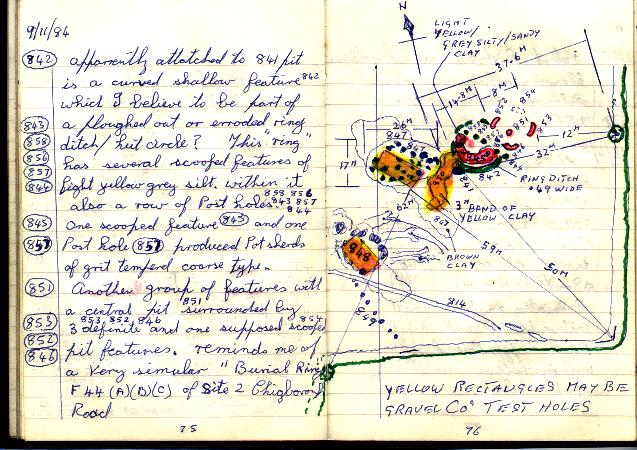 9/11/84
842 apparently attatched to 841 pit
is a curved shallow feature 842
which I believe to be part of
843 a ploughed out or erroded ring
858 ditch/hut circle? This "ring"
856 has several scooped features of
857
844 light yellow grey silt. within it
858 856
also a row of Post holes. 843 857
844
845 One scooped feature 843 and one
857 Post hole 857 produced Potsherds
of grit temperd coarse type.
851 Another group of features with
a central pit 851 surrounded by
853 853, 852, 846
3 definite and one supposed scooped 854
852
846 pit features. reminds me of
a very simular "Burial Ring"
F 44 (A)(B)(C) of Site 2 Chigborough
Road
75
N
LIGHT
YELLOW/
GREY SILTY/SANDY
CLAY
37·6 M
14·8M
8M
12M
32M
26 M
847
847
17M
842
RING DITCH
·49 WIDE
62M
3M BAND OF
YELLOW CLAY
BROWN
CLAY
59M
50M
848
814
859
YELLOW RECTANGLES MAY BE
GRAVEL Co⁵ TEST HOLES
76